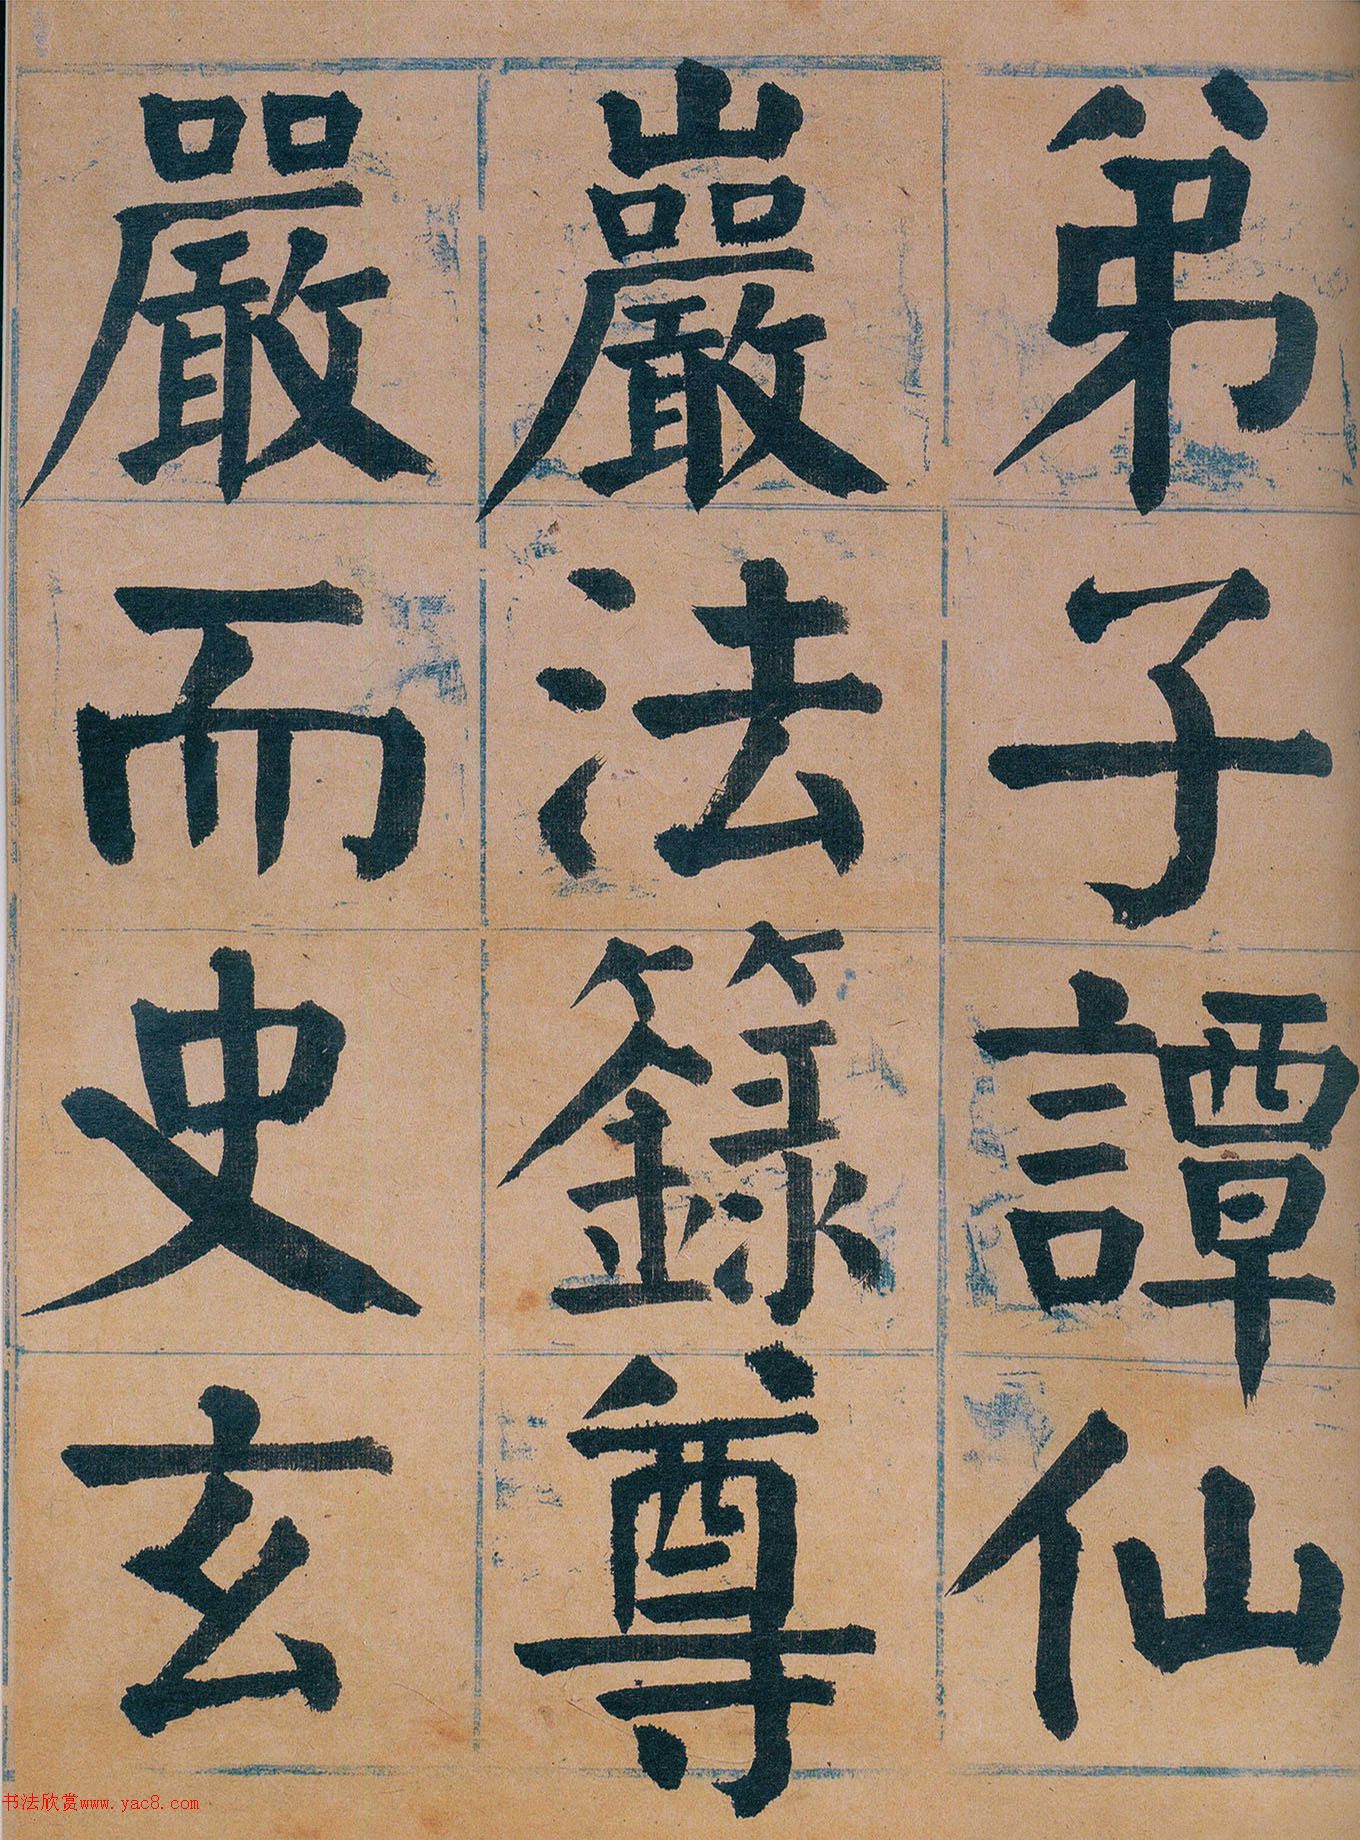 弟子譚仙
巖法籙尊
嚴而史玄
书法欣赏www.yac8.com